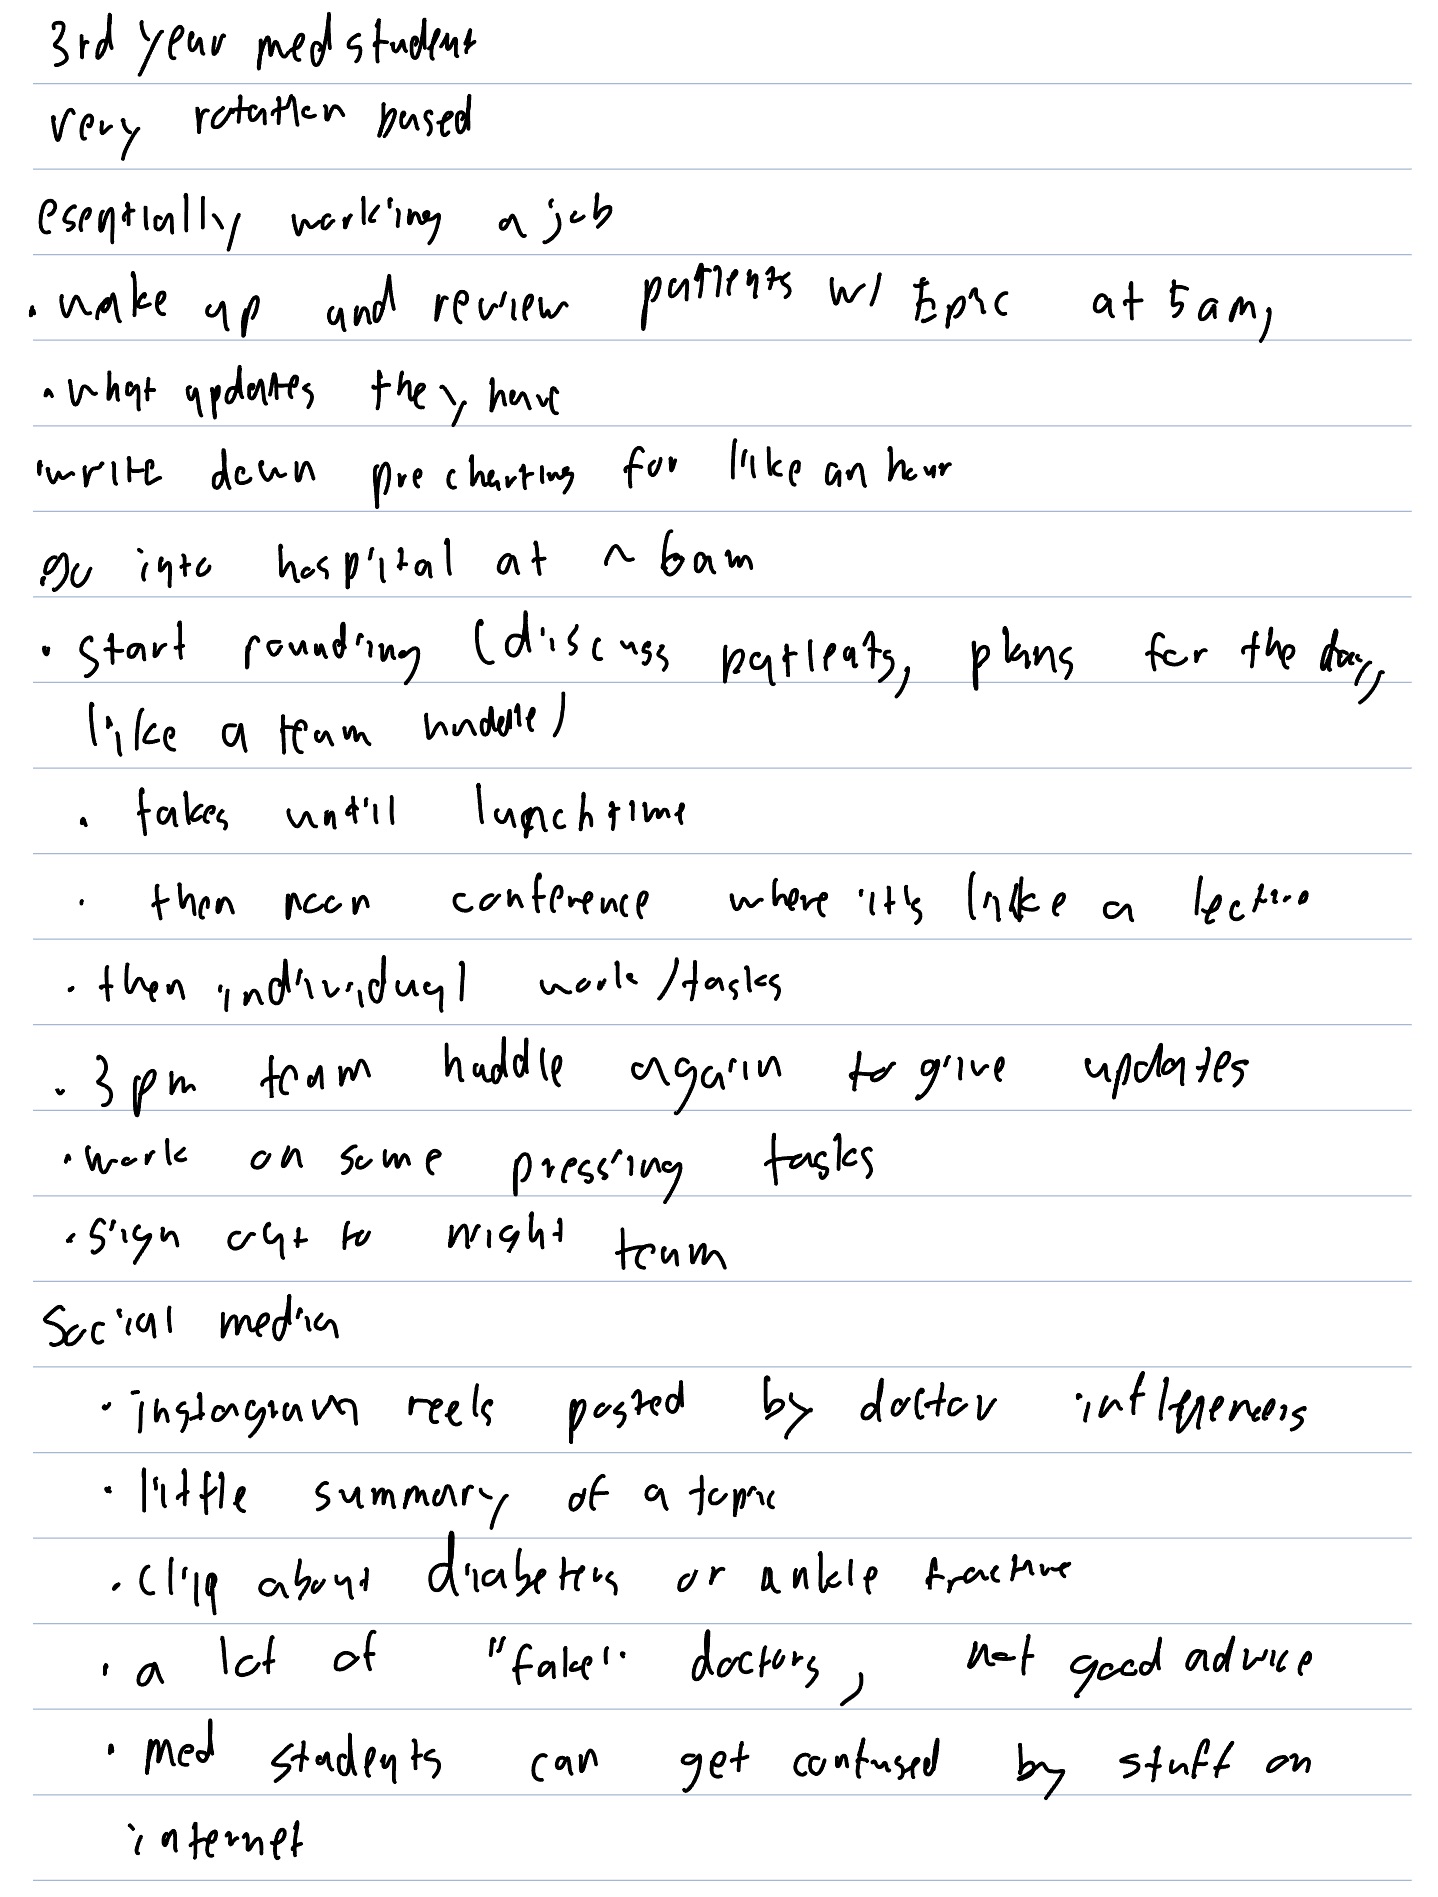 3rd year med student
very rotation based
esentially working a job
• wake up and review patients w/ Epic at 5am,
• what updates they have
• write down precharting for like an hour
go into hospital at ~ 6am
• start rounding (discuss patients, plans for the day,
like a team huddle)
• takes until lunchtime
• then noon conference where it's like a lecture
• then individual work/tasks
• 3pm team huddle again to give updates
• work on some pressing tasks
• sign out to night team
Social media
• instagram reels posted by doctor influencers
• little summary of a topic
• clip about diabetes or ankle fracture
• a lot of "fake" doctors, not good advice
• med students can get confused by stuff on
internet